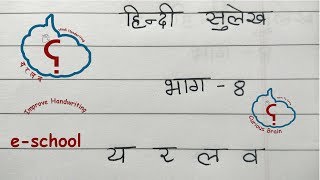 हिन्दी सुलेख
भाग - 8
Improve Handwriting
Curious Brain
e-school
य र ल व